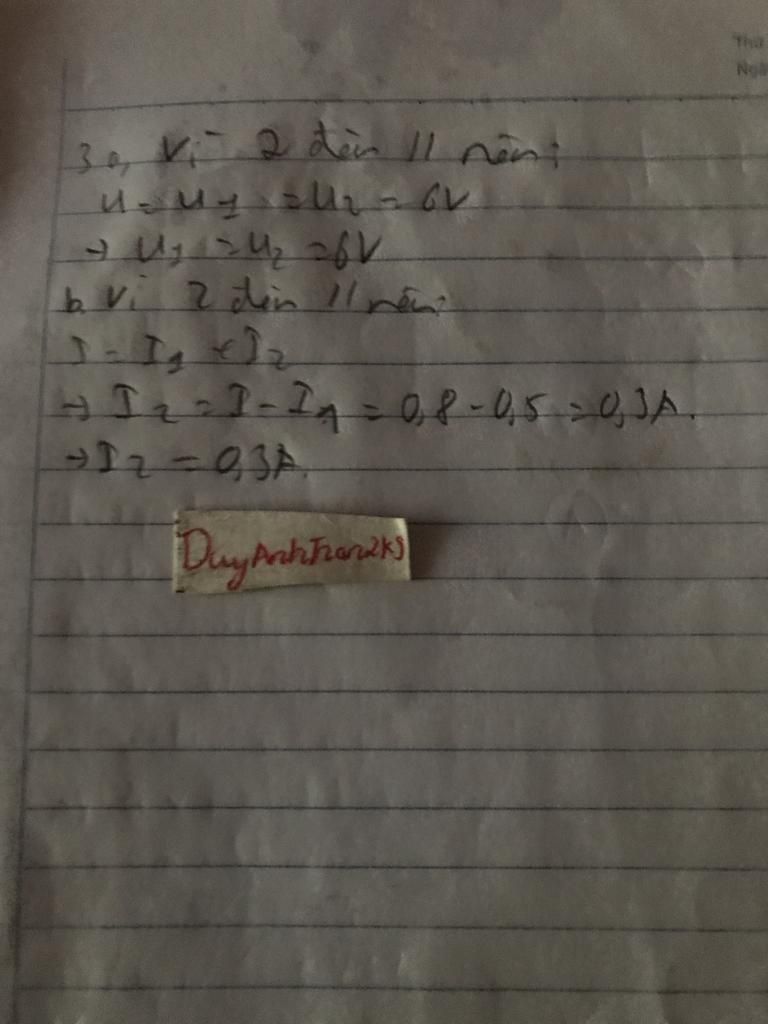 Thứ
Ngà
3a, Vì 2 đèn // nên:
U = U1 = U2 = 6V
→ U1 = U2 = 6V
b. Vì 2 đèn // nên:
I = I1 + I2
→ I2 = I - I1 = 0,8 - 0,5 = 0,3A.
→ I2 = 0,3A.
DuyAnhTran2k9